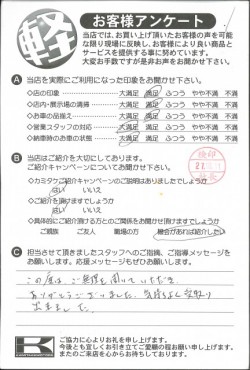 軽
お客様アンケート
当店では、お買い上げ頂いたお客様の声を可能
な限り現場に反映し、お客様により良い商品と
サービスを提供する事に努めています。
大変お手数ですが是非お声をお聞かせ下さい。
A 当店を実際にご利用になった印象をお聞かせ下さい。
◇店の印象 大満足 満足 ふつう やや不満 不満
◇店内・展示場の清掃 大満足 満足 ふつう やや不満 不満
◇お車の品揃え 大満足 満足 ふつう やや不満 不満
◇営業スタッフの対応 大満足 満足 ふつう やや不満 不満
◇納車時のお車の状態 大満足 満足 ふつう やや不満 不満
B 当店はご紹介を大切にしております。
ご紹介キャンペーンについてお聞かせ下さい。
◇カミタケご紹介キャンペーンのご説明はありましたでしょうか
はい いいえ
◇ご紹介を頂けますでしょうか
はい いいえ
◇具体的にご紹介頂ける方とのご関係をお聞かせ頂けますでしょうか
ご親族 ご友人 職場の方 機会があれば紹介したい
C 担当させて頂きましたスタッフへのご指摘、ご指導メッセージを
お願いします。応援メッセージもぜひお願いします。
この度は、ご無理を聞いていただき
ありがとうございました。気持よく受取り
出来ました。
K
ご協力に心よりお礼を申し上げます。
今後とも宜しくお引き立てご愛顧の程お願い申し上げます。
またのご来店を心からお待ちしております。